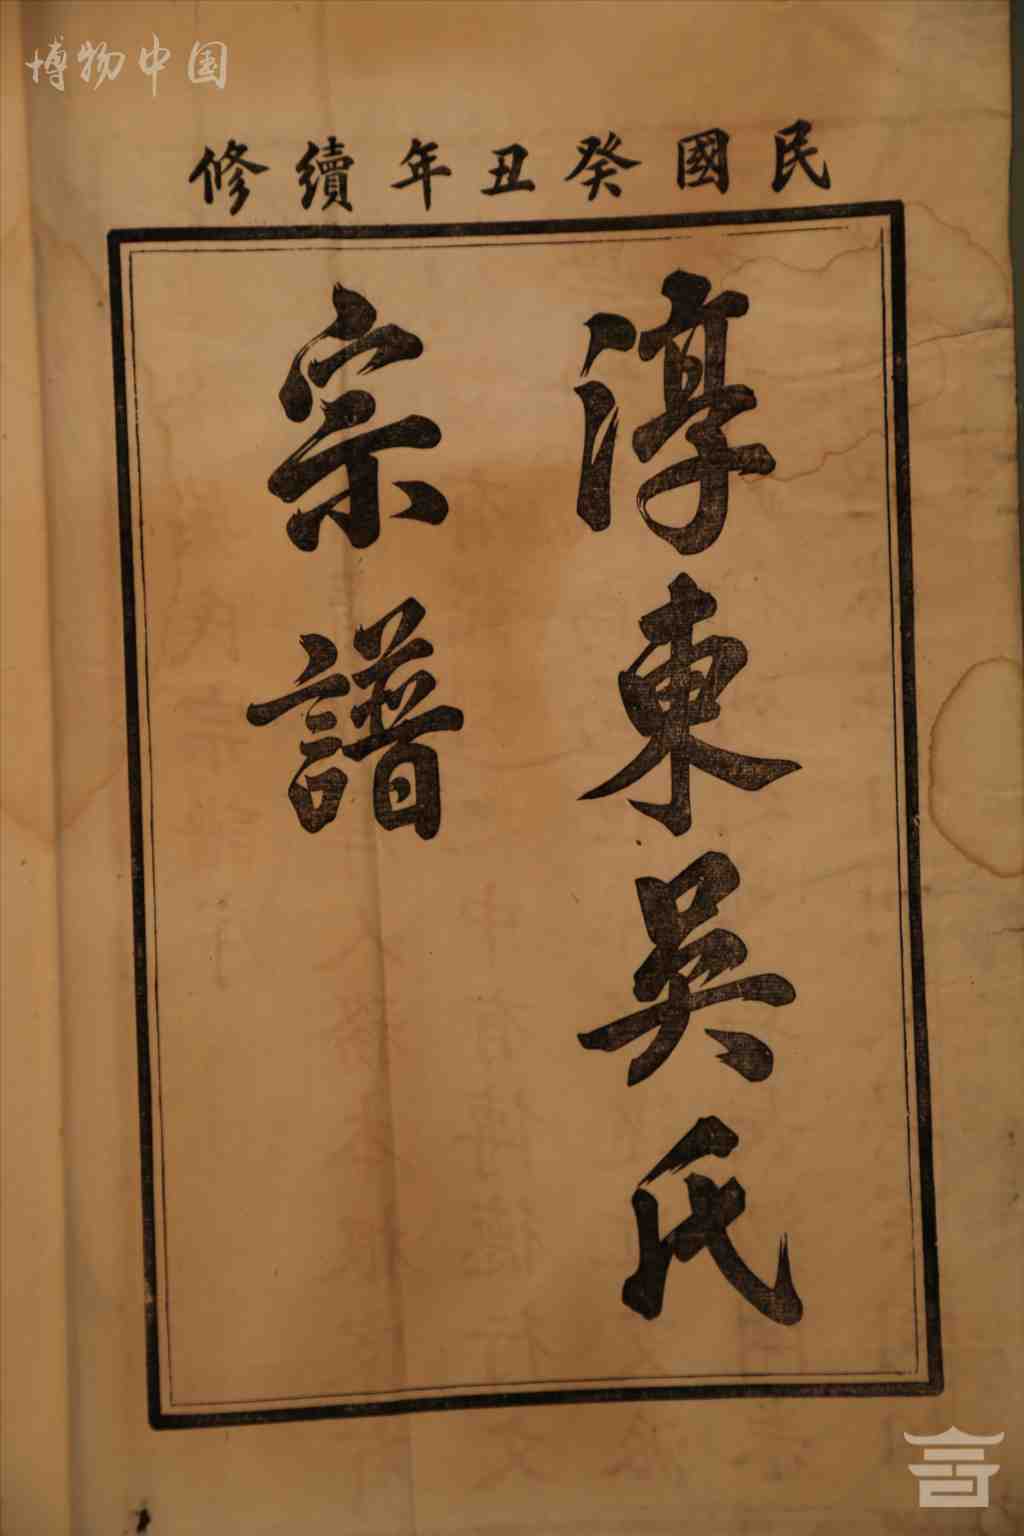 博物中国
民國癸丑年續修
淳東吳氏
宗譜